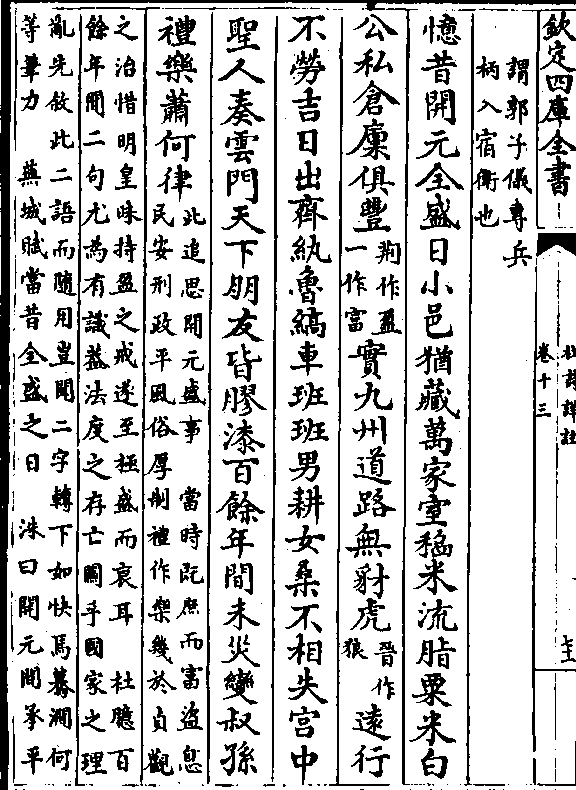 欽定四庫全書
杜詩詳註
卷十三
謂郭子儀專兵
柄入宿衛也
憶昔開元全盛日小邑猶藏萬家室稻米流脂粟米白
公私倉廩俱豐荆作盈一作富實九州道路無豺虎晉作狼遠行
不勞吉日出齊紈魯縞車班班男耕女桑不相失宮中
聖人奏雲門天下朋友皆膠漆百餘年間未災變叔孫
禮樂蕭何律此追思開元盛事 當時既庶而富盜息
民安刑政平風俗厚制禮作樂幾於貞觀
之治惜明皇昧持盈之戒遂至極盛而衰耳 杜臆百
餘年間二句尤為有識葢法度之存亡關乎國家之理
亂先敘此二語而隨用豈聞二字轉下如快馬驀澗何
等筆力 蕪城賦當昔全盛之日 洙曰開元間承平